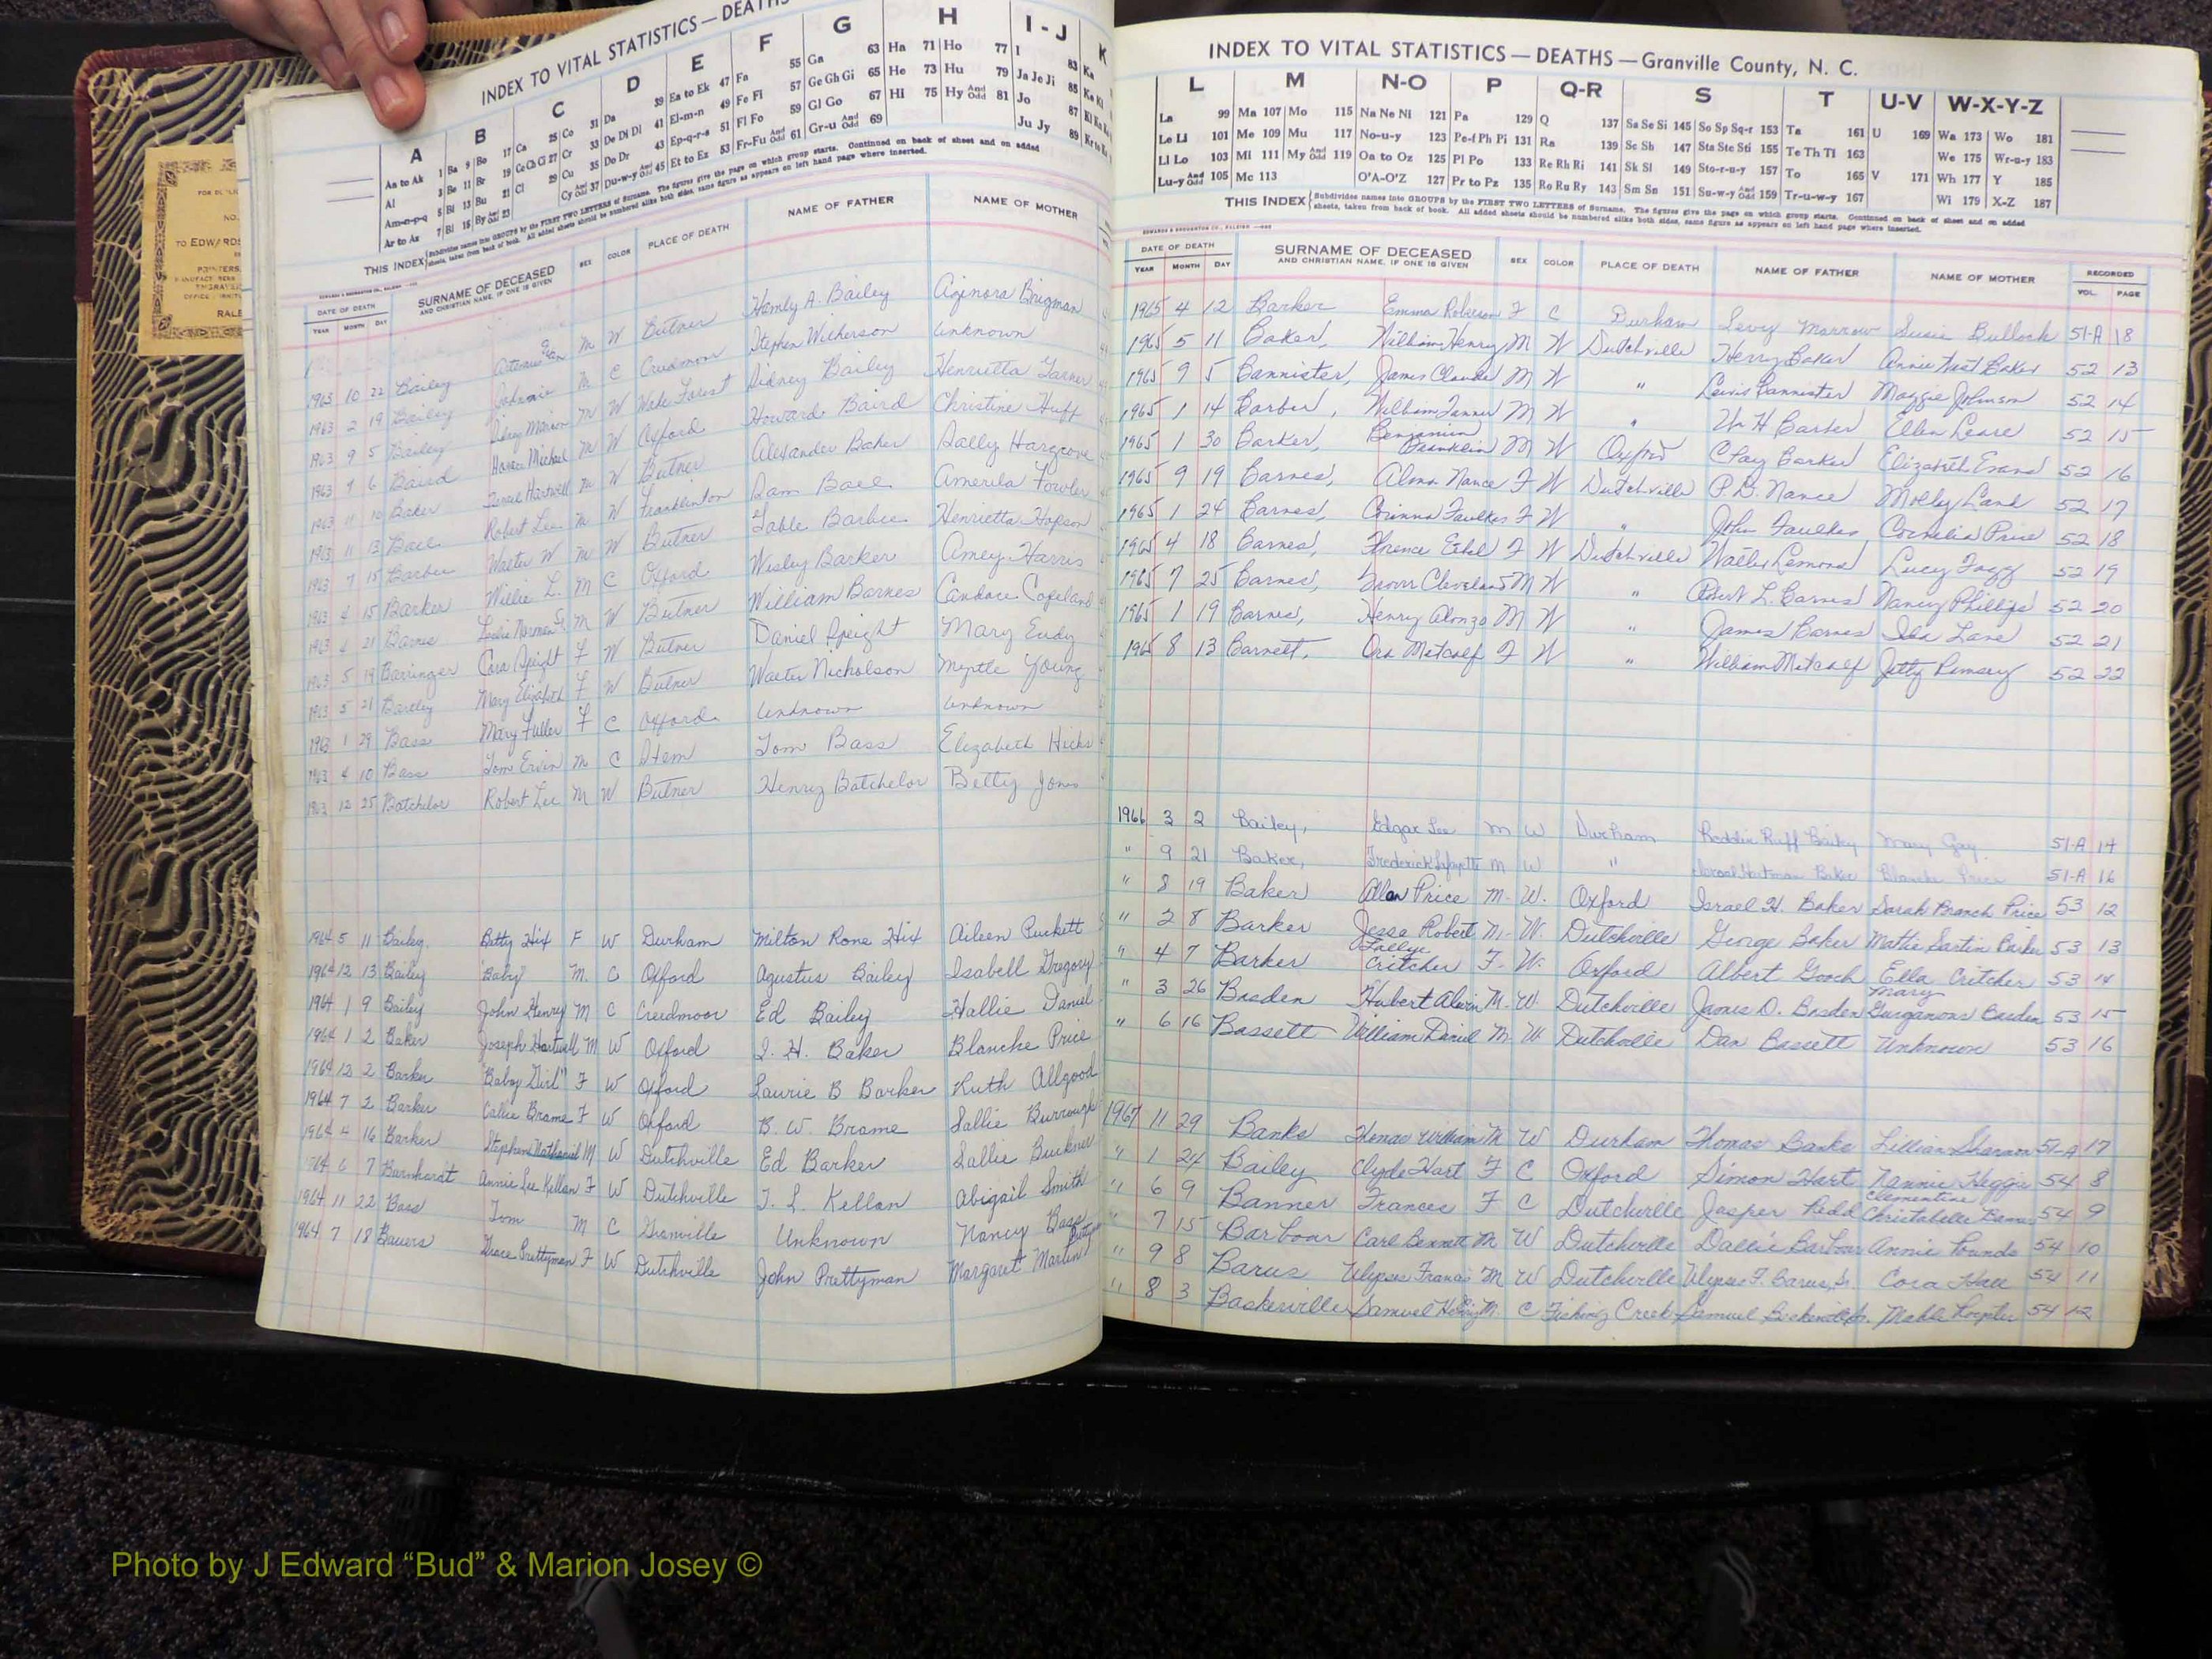 INDEX TO VITAL STATISTICS — DEATHS
A B C D E F G H I - J K
Aa to Ak 1 Ba 9 Bo 17 Ca 25 Co 31 Da 39 Ea to Ek 47 Fa 55 Ga 63 Ha 71 Ho 77 I 83 Ka
Al 3 Be 11 Br 19 Ce Ch Ci 27 Cr 33 De Di Dl 41 El-m-n 49 Fe Fi 57 Ge Gh Gi 65 He 73 Hu 79 Ja Je Ji 85
Am-n-p-q 5 Bi 13 Bu 21 Cl 29 Cu 35 Do Dr 43 Ep-q-r-s 51 Fl Fo 59 Gl Go 67 Hi 75 Hy And Odd 81 Jo 87
Ar to Az 7 Bl 15 By And Odd 23 Cy And Odd 37 Du-w-y And Odd 45 Et to Ez 53 Fr-Fu And Odd 61 Gr-u And Odd 69 Ju Jy 89
THIS INDEX Subdivides names into GROUPS by the FIRST TWO LETTERS of Surname. The figures give the page on which group starts. Continued on back of sheet and on added
sheets, taken from back of book. All added sheets should be numbered alike both sides, same figure as appears on left hand page where inserted.
DATE OF DEATH SURNAME OF DECEASED SEX COLOR PLACE OF DEATH NAME OF FATHER NAME OF MOTHER
YEAR MONTH DAY AND CHRISTIAN NAME, IF ONE IS GIVEN
1963 10 22 Bailey M W Butner Hamly A. Bailey Brigman
1963 2 19 Bailey Johnnie M C Creedmoor Stephen Wilkerson unknown
1963 9 5 Bailey Sidney Marion M W Wake Forest Sidney Bailey Henrietta Garner
1963 9 6 Baird Horace Michael M W Oxford Howard Baird Christine Huff
1963 11 10 Baker Hartwell M W Butner Alexander Baker Sally Hargrove
1963 11 13 Ball Robert Lee M W Franklinton Sam Ball Amerila Fowler
1963 7 15 Barbee Walter W M W Butner Gable Barbee Henrietta Hopson
1963 4 15 Barker Willie L. M C Oxford Wesley Barker Amey Harris
1963 4 21 Barnes Leslie Norman Sr. M W Butner William Barnes Candace Copeland
1963 5 19 Barringer Cora Speight F W Butner Daniel Speight Mary Eudy
1963 5 21 Bartley Mary Elizabeth F W Butner Walter Nicholson Myrtle Young
1963 1 29 Bass Mary Fuller F C Oxford unknown unknown
1963 4 10 Bass Tom Ervin M C Stem Tom Bass Elizabeth Hicks
1963 12 25 Batchelor Robert Lee M W Butner Henry Batchelor Betty Jones
1964 5 11 Bailey Betty Hix F W Durham Milton Rone Hix Aileen Puckett
1964 12 13 Bailey "Baby" M. C Oxford Agustus Bailey Isabell Gregory
1964 1 9 Bailey John Henry M C Creedmoor Ed Bailey Hallie Daniel
1964 1 2 Baker Joseph Hartwell M W Oxford I. H. Baker Blanche Price
1964 12 2 Barker "Baby Girl" F W Oxford Laurie B Barker Ruth Allgood
1964 7 2 Barker Callie Brame F W Oxford B. W. Brame Sallie Burrough
1964 4 16 Barker Stephen Nathaniel M W Dutchville Ed Barker Sallie Buckner
1964 6 7 Barnhardt Annie Lee Kellan F W Dutchville T. L. Kellan Abigail Smith
1964 11 22 Bass Tom M C Granville Unknown Nancy Bass
1964 7 18 Bauers Grace Prettyman F W Dutchville John Prettyman Margaret Martin
INDEX TO VITAL STATISTICS — DEATHS — Granville County, N. C.
L M N-O P Q-R S T U-V W-X-Y-Z
La 99 Ma 107 Mo 115 Na Ne Ni 121 Pa 129 Q 137 Sa Se Si 145 So Sp Sq-r 153 Ta 161 U 169 Wa 173 Wo 181
Le Li 101 Me 109 Mu 117 No-u-y 123 Pe-f Ph Pi 131 Ra 139 Sc Sh 147 Sta Ste Sti 155 Te Th Ti 163 We 175 Wr-u-y 183
Ll Lo 103 Mi 111 My And Odd 119 Oa to Oz 125 Pl Po 133 Re Rh Ri 141 Sk Sl 149 Sto-r-u-y 157 To 165 V 171 Wh 177 Y 185
Lu-y And Odd 105 Mc 113 O'A-O'Z 127 Pr to Pz 135 Ro Ru Ry 143 Sm Sn 151 Su-w-y And Odd 159 Tr-u-w-y 167 Wi 179 X-Z 187
THIS INDEX Subdivides names into GROUPS by the FIRST TWO LETTERS of Surname. The figures give the page on which group starts. Continued on back of sheet and on added
sheets, taken from back of book. All added sheets should be numbered alike both sides, same figure as appears on left hand page where inserted.
DATE OF DEATH SURNAME OF DECEASED SEX COLOR PLACE OF DEATH NAME OF FATHER NAME OF MOTHER RECORDED
YEAR MONTH DAY AND CHRISTIAN NAME, IF ONE IS GIVEN VOL. PAGE
1965 4 12 Barker Emma Roberson F C Durham Levy Morrow Susie Bullock 51-A 18
1965 5 11 Baker, William Henry M W Dutchville Henry Baker Annie West Baker 52 13
1965 9 5 Bannister, James Claude M W " Lewis Bannister Maggie Johnson 52 14
1965 1 14 Barber, William Tanner M W " W H Barber Ellen Leare 52 15
1965 1 30 Barker, Benjamin Franklin M W Oxford Clay Barker Elizabeth Evans 52 16
1965 9 19 Barnes, Alma Nance F W Dutchville P.D. Nance Molly Land 52 17
1965 1 24 Barnes, Corinna Faulkes F W " John Faulkes Cornelia Price 52 18
1965 4 18 Barnes, Florence Ethel F W Dutchville Walter Lemons Lucy Fagg 52 19
1965 7 25 Barnes, Grover Cleveland M W " Robert L. Barnes Nancy Phillips 52 20
1965 1 19 Barnes, Henry Alonzo M W " James Barnes Ida Lane 52 21
1965 8 13 Barnett, Ora Metcalf F W " William Metcalf Jetty Ramsey 52 22
1966 3 2 Bailey, Edgar Lee M W Durham Reddin Ruff Bailey Mary Gay 51-A 14
" 9 21 Baker, Frederick Lafayette M W " Israel Hartman Baker Blanche Price 51-A 16
" 8 19 Baker Allen Price M. W. Oxford Israel H. Baker Sarah Branch Price 53 12
" 2 8 Barker Jesse Robert M. W. Dutchville George Baker Mattie Sartin Barker 53 13
" 4 7 Barker Sallye Critcher F. W. Oxford Albert Gooch Ella Critcher 53 14
" 3 26 Basden Hubert Alvin M. W. Dutchville James D. Basden Mary Gurganous Basden 53 15
" 6 16 Bassett William Daniel M. W. Dutchville Dan Bassett Unknown 53 16
1967 11 29 Banks Thomas William M W Durham Thomas Banks Lillian Sharron 51-A 17
" 1 24 Bailey Clyde Hart F C Oxford Simon Hart Nannie Heggie 54 8
" 6 9 Banner Frances F C Dutchville Jasper Redd Clementine Christabelle 54 9
" 7 15 Barbour Carl Bennett M W Dutchville Dallie Barbour Annie Pounds 54 10
" 9 8 Barus Ulysses Francis M W Dutchville Ulysses F. Barus, Sr. Cora Hall 54 11
" 8 3 Baskerville Samuel Henry M. C Fishing Creek Samuel Baskerville Sr. Mable 54 12
Photo by J Edward “Bud” & Marion Josey ©